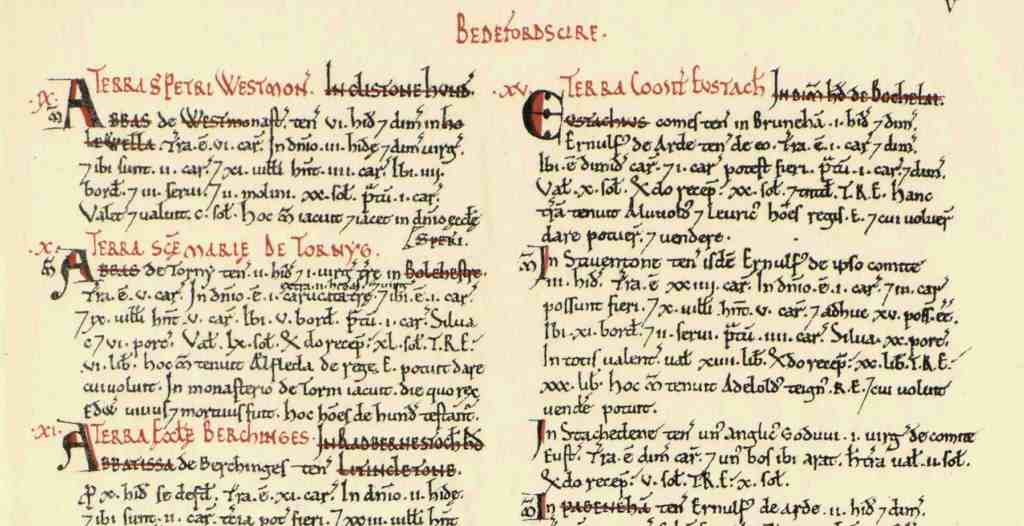 V
BEDEFORDSCIRE.
.IX. TERRA S PETRI WESTMON. IN CLISTONE HUND
M ABBAS de Westmonast. ten .VI. hid 7 dim in ho
lewella. Tra. e. VI. car. In dnio .III. hide 7 dim virg.
7 ibi sunt .II. car. 7 XI. uilli hnt .IIII. car. Ibi .IIII.
bord. 7 III. serui. 7 II. molini. XX. sol. ptu .I. car.
Valet 7 ualuit. C. sol. Hoc M iacuit 7 iacet in dnio eccle
S PETRI.
.X. TERRA SCE MARIE DE TORNYG.
M ABBAS de Torny ten .II. hid 7 I. uirg tre in Bolehestre.
Tra. e. V. car. In dnio. e. I. carucata tre. 7 ibi. e. I. car.
7 IX. uilli hnt .V. car. Ibi .V. bord. ptu .I. car. Silua
C 7 VI. porc. Val. LX. sol. & do recep. XL. sol. T.R.E.
VI. lib. Hoc M tenuit Alfleda de rege. E. potuit dare
cui uoluit. In monasterio de Torni iacuit. die quo rex
Edw uiuus 7 mortuus fuit. Hoc hoes de hund testant.
.XI. TERRA ECCLE BERCHINGES. IN RADBERNESTOCH HD
ABBATISSA de Berchinges ten LITINCLETONE.
p X. hid se defd. Tra. e. XI. car. In dnio .II. hide.
7 ibi sunt .II. car. tcia pot fieri. 7 XXIII. uilli hnt
.XV. TERRA COMIT EUSTACH. IN DIM HD DE BOCHELAI.
EUSTACHIUS comes ten in Bruneha .I. hid 7 dim.
Ernulf de Arde ten de eo. Tra. e. I. car 7 dim.
Ibi. e dimid car. 7 I. car potest fieri. ptu .I. car. 7 dim.
Val. X. sol. & do recep. XX. sol. 7 tntd. T.R.E. Hanc
tra tenuit Aluuold 7 Leuric hoes regis. E. 7 cui uoluer
dare potuer. 7 uendere.
M In Stauentone ten isde Ernulf de ipso comite
III. hid. Tra. e XXIIII. car. In dnio. e. I. car. 7 III. car
possunt fieri. 7 X. uilli hnt .V. car. 7 adhuc XV. poss. ee.
Ibi .XI. bord. 7 II. serui. ptu .IIII. car. Silua. XX. porc.
In totis ualent. ual XVIII. lib. & do recep. XX. lib. T.R.E.
XXX. lib. Hoc M tenuit Adelold teign. R.E. 7 cui uoluit
uende potuit.
In Stachedene ten un Anglic Goduui .I. uirg de comite
Eust. Tra. e dim car. 7 un bos ibi arat. H tra ual. II. sol.
& do recep. V. sol. T.R.E. X. sol.
M In PADENEHA ten Ernulf de Arde .II. hid 7 dim.